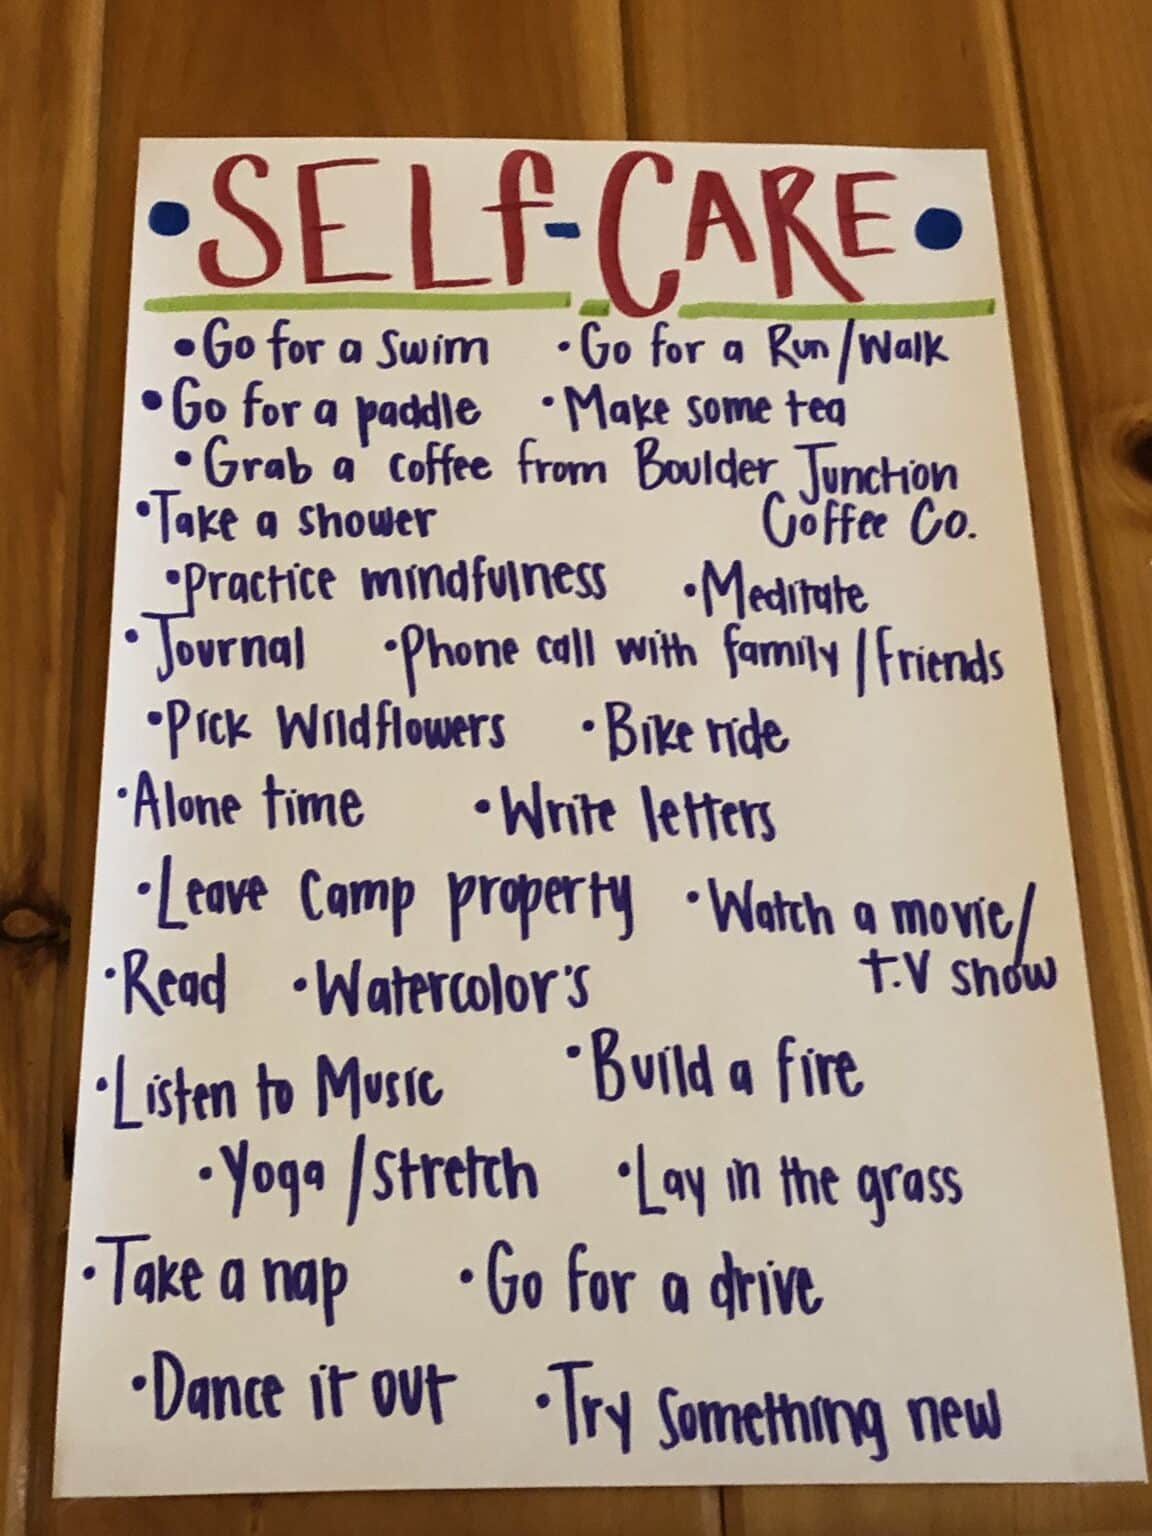 • SELf-CARE •
• Go for a swim • Go for a Run/Walk
• Go for a paddle • Make some tea
• Grab a coffee from Boulder Junction
Coffee Co.
• Take a shower
• Practice mindfulness • Meditate
• Journal • Phone call with family/friends
• Pick Wildflowers • Bike ride
• Alone time • Write letters
• Leave Camp property • Watch a movie/
T.V show
• Read • Watercolor's
• Listen to Music • Build a fire
• Yoga/stretch • Lay in the grass
• Take a nap • Go for a drive
• Dance it out • Try something new